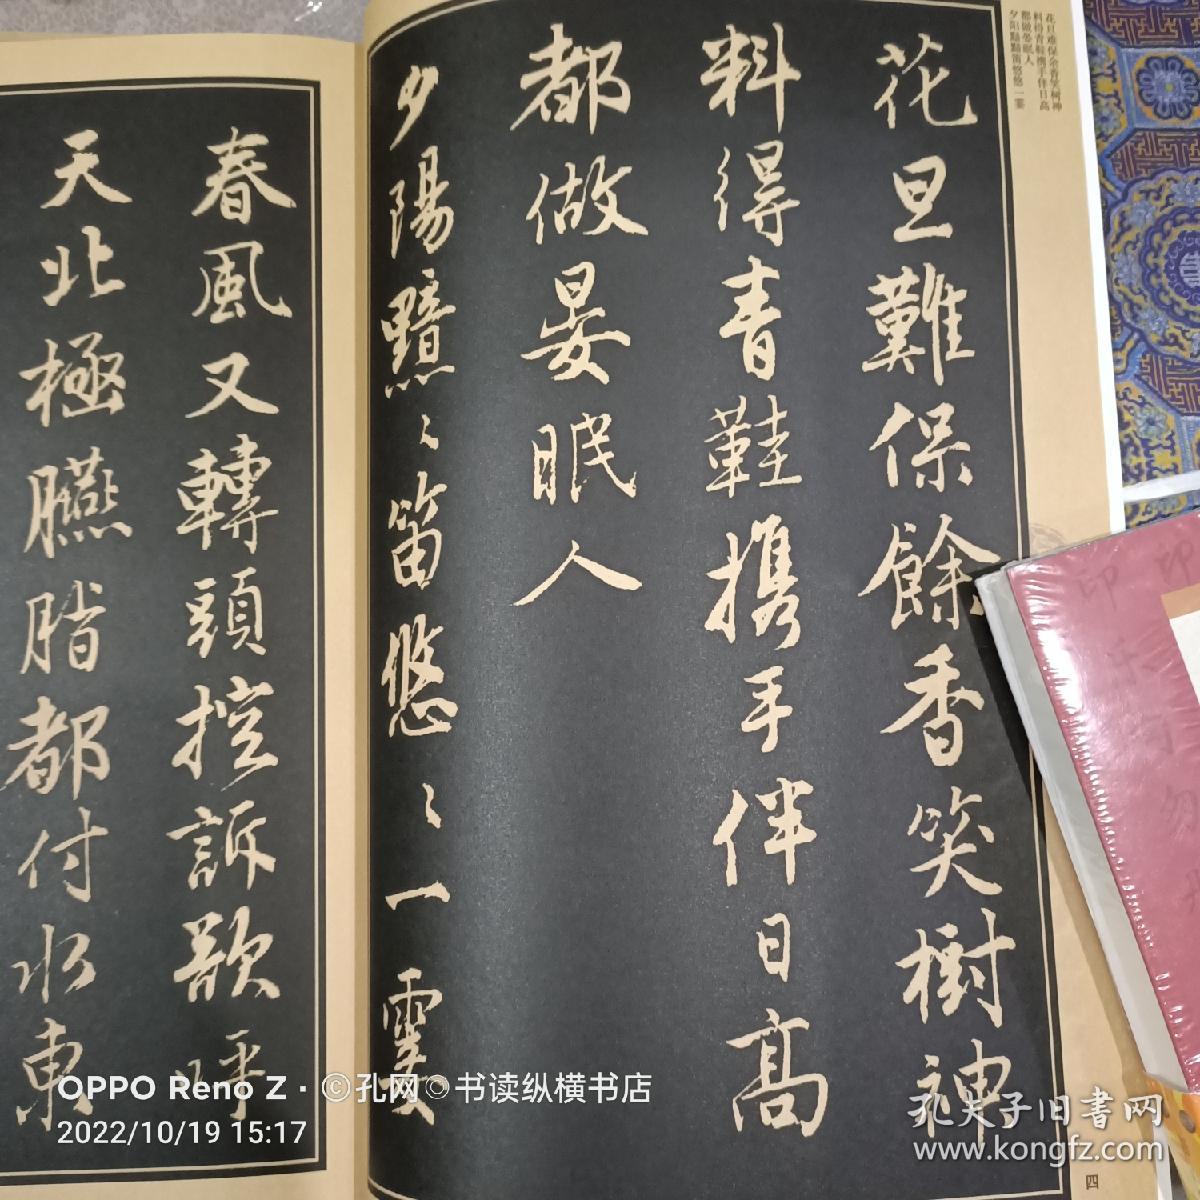 花旦难保余香笑树神
料得青鞋携手伴日高
都做晏眠人
夕阳黯黯笛悠悠一霎
花旦難保餘香笑樹神
料得青鞋携手伴日高
都做晏眠人
夕陽黯〻笛悠〻一霎
春風又轉頭控訴欲呼
天北極臙脂都付水東
四
OPPO Reno Z · ©孔网◎书读纵横书店
2022/10/19 15:17
孔夫子旧书网
www.kongfz.com